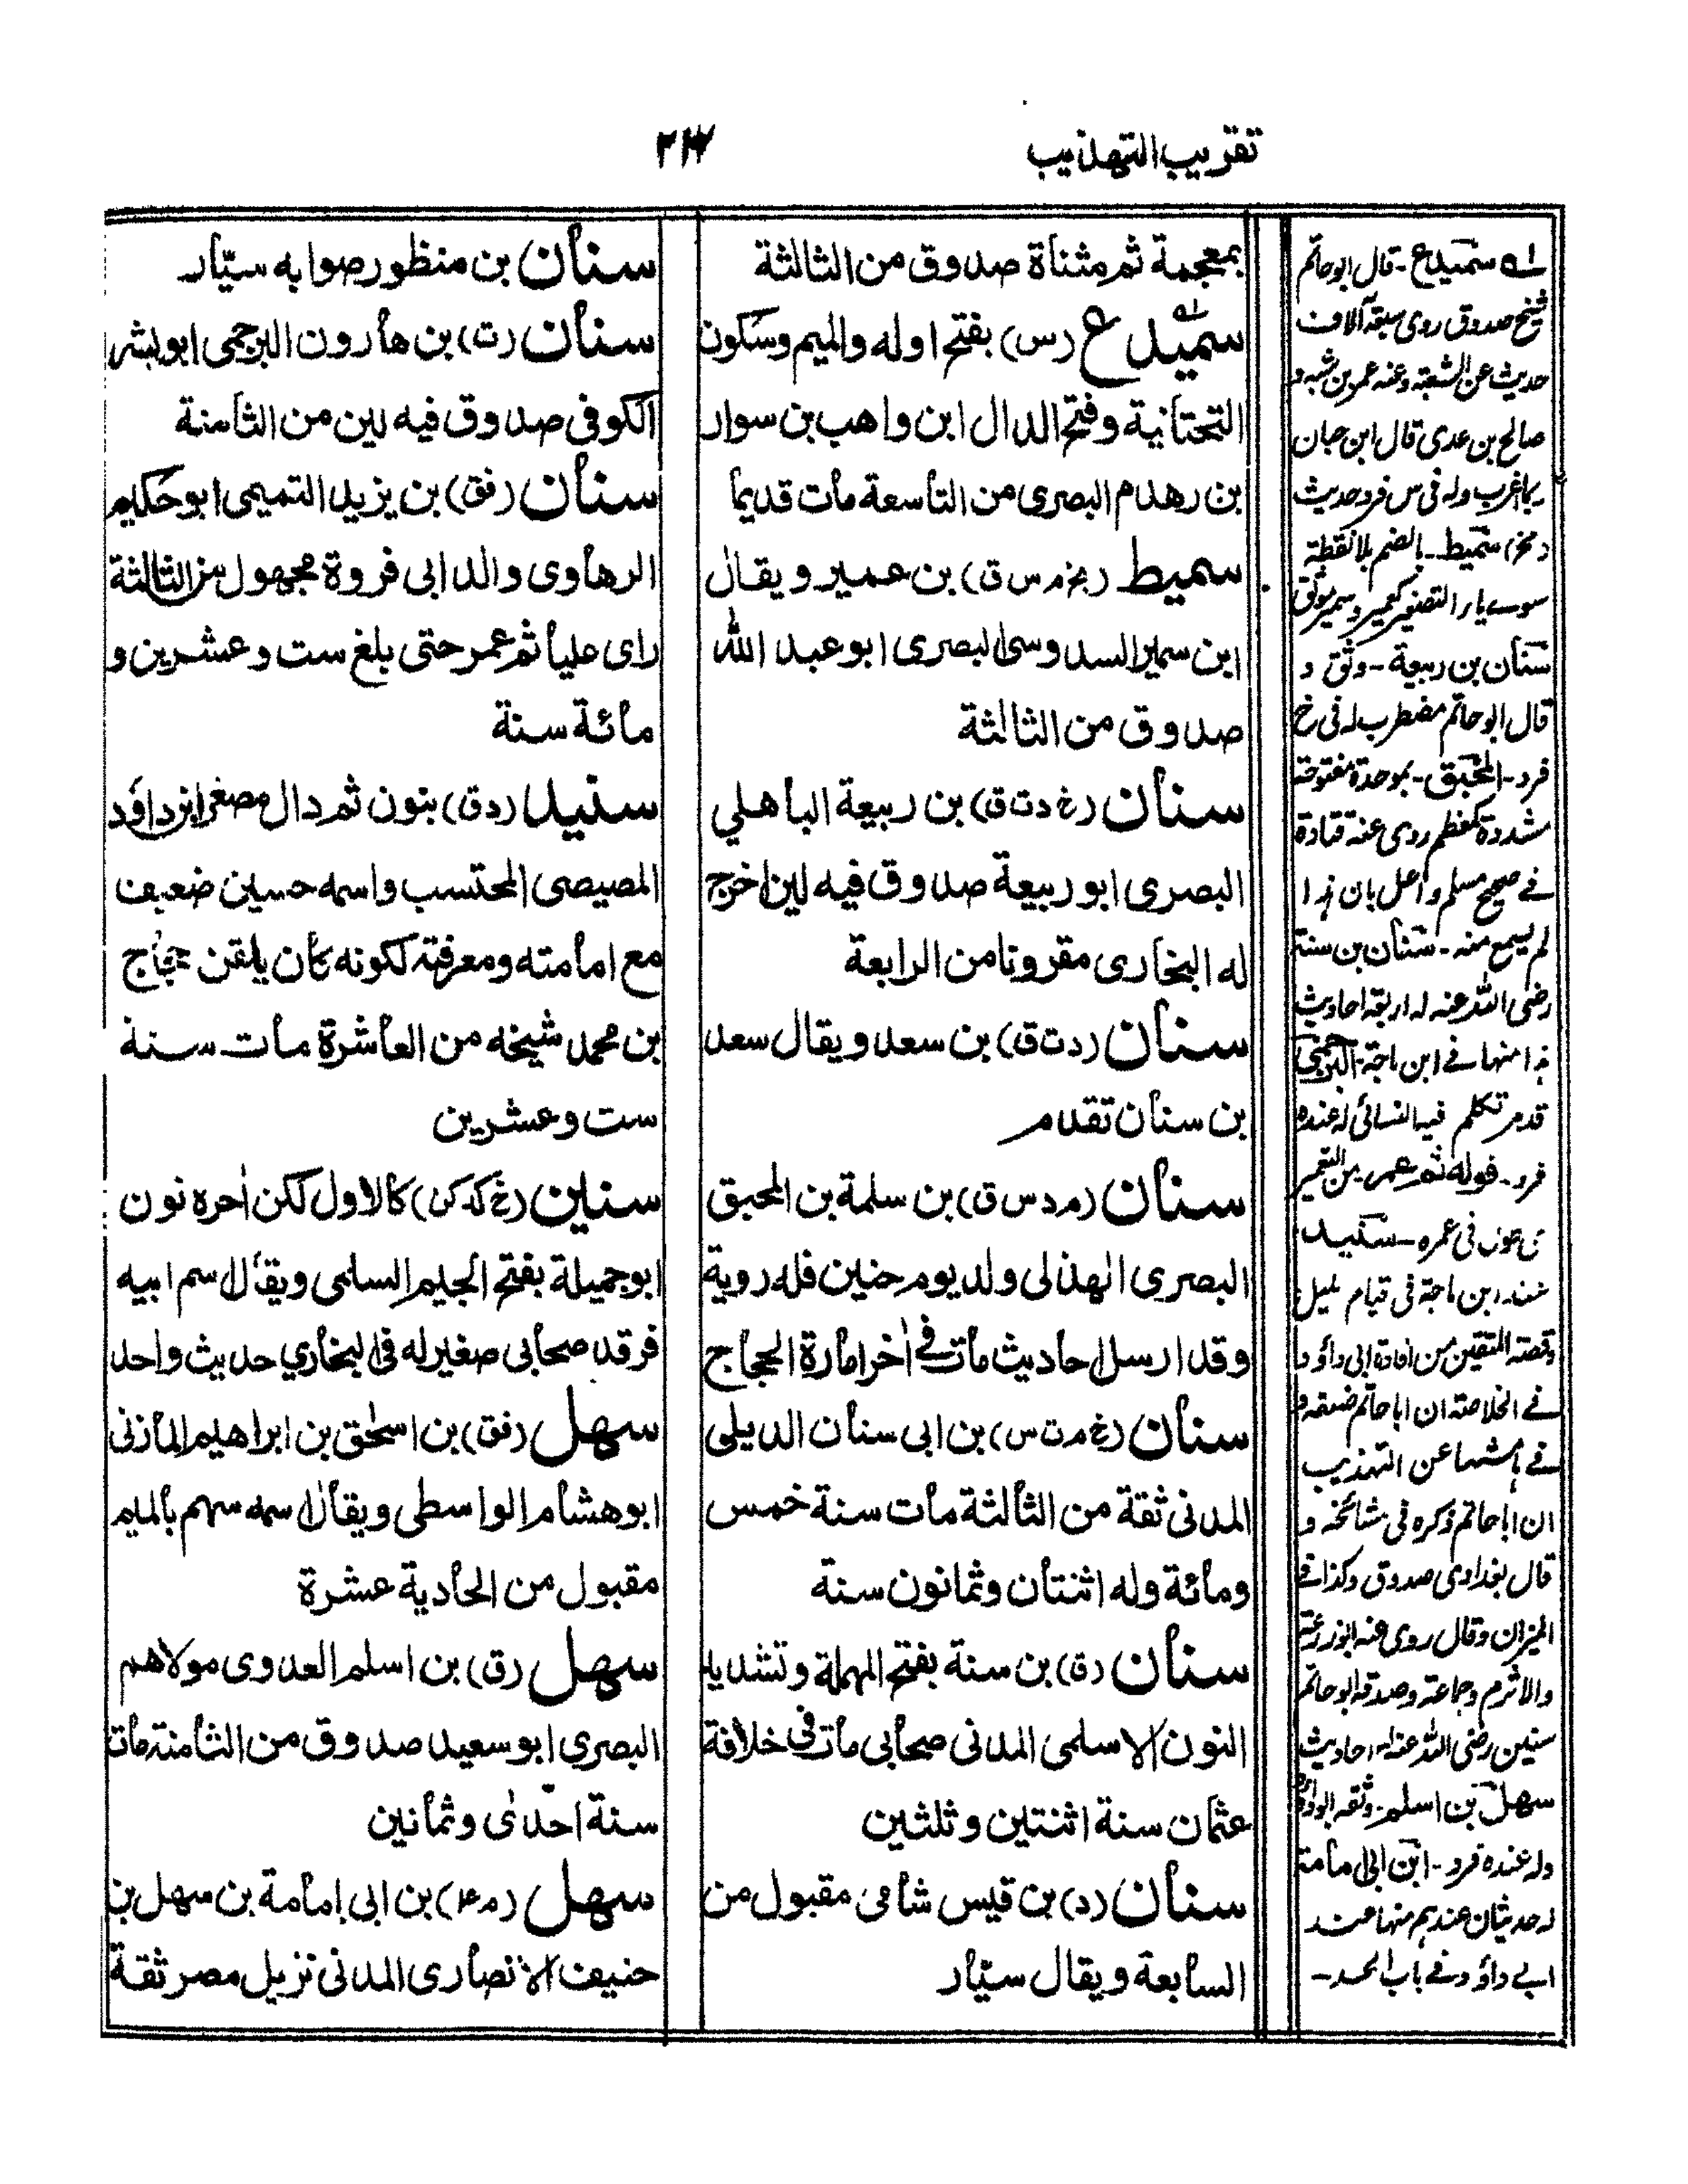 تقريب التهذيب
بمعجمة ثم مثناة صدوق من الثالثة
سميدع (س) بفتح اوله والميم وسكون
التحتانية وفتح الدال ابن واهب بن سوار
بن زهدم البصرى من التاسعة مات قديما
سميط (بخ م س ق) بن عمير ويقال
ابن سمير السدوسى البصرى ابو عبد الله
صدوق من الثالثة
سنان (خ د ت ق) بن ربيعة الباهلي
البصرى ابو ربيعة صدوق فيه لين اخرج
له البخارى مقرونا من الرابعة
سنان (د ت ق) بن سعد ويقال سعد
بن سنان تقدم
سنان (م د س ق) بن سلمة بن المحبق
البصري الهذلى ولد يوم حنين فله روية
وقد ارسل احاديث مات في اٰخر امارة الحجاج
سنان (خ م ت س) بن ابى سنان الديلى
المدنى ثقة من الثالثة مات سنة خمس
ومائة وله اثنتان وثمانون سنة
سنان (ق) بن سنة بفتح المهملة وتشديد
النون الاسلمى المدنى صحابى مات فى خلافة
عثمان سنة اثنتين وثلثين
سنان (د) بن قيس شامى مقبول من
السابعة ويقال سيّار
سنان بن منظور صوابه سيّار
سنان (ت) بن هارون البرجمى ابو بشر
الكوفى صدوق فيه لين من الثامنة
سنان (فق) بن يزيد التميمى ابو حكيم
الرهاوى والد ابى فروة مجهول من الثالثة
راى عليا ثم عمر حتى بلغ ست وعشرين و
مائة سنة
سنيد (د ق) بنون ثم دال مصغر ابن داؤد
المصيصى المحتسب واسمه حسين ضعيف
مع امامته ومعرفته لكونه كان يلقن حجاج
بن محمد شيخه من العاشرة مات سنة
ست وعشرين
سنين (خ كد كن) كالاول لكن اٰخره نون
ابو جميلة بفتح الجيم السلمى ويقال اسم ابيه
فرقد صحابى صغير له فى البخاري حديث واحد
سهل (فق) بن اسحٰق بن ابراهيم المازنى
ابو هشام الواسطى ويقال اسمه سهم بالميم
مقبول من الحادية عشرة
سهل (ق) بن اسلم العدوى مولاهم
البصرى ابو سعيد صدوق من الثامنة مات
سنة احدٰى وثمانين
سهل (م ۴) بن ابى امامة بن سهل بن
حنيف الانصارى المدنى نزيل مصر ثقة
له سميدع - قال ابو حاتم
شيخ صدوق روى سبعة آلاف
حديث عن الشعبة وعنه عمر بن شبه و
صالح بن عدى قال ابن حبان
ربما اغرب وله فى س فرد حديث
سميط - بالضم بلا نقطة
سنان بن ربيعة - وثق و
قال ابو حاتم مضطرب له فى خ
فرد - المحبق - بموحدة مفتوحة
مشددة كمعظم روى عنه قتادة
فے صحيح مسلم واعل بان هذا
لم يسمع منه - سنان بن سنة
رضى الله عنه له اربعة احاديث
هذا منها فے ابن ماجة - البرجمى
قد تكلم فيه النسائى له عنده
فرد - قوله ثم عمر من التعمير
فى عمره - سنيد
عند ابن ماجة فى قيام الليل
وقصة التلقين من افادة ابى داؤد
فے الخلاصة ان ابا حاتم ضعفه و
فے هامشها عن التهذيب
ان ابا حاتم ذكره فى مشائخه و
قال بغدادى صدوق وكذا فے
الميزان وقال روى عنه ابو زرعة
والاثرم وجماعة وصدقه ابو حاتم
سنين رضى الله عنه له احاديث
سهل بن اسلم - وثقه ابو داؤد
وله عنده فرد - ابن ابى امامة
له حديثان عندهم منها عند
ابے داؤد فے باب الحسد -